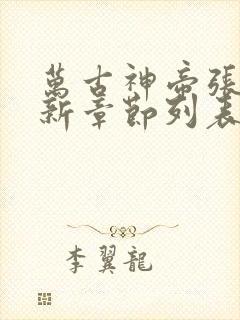 萬古神帝張
新章節列表
李翼龍